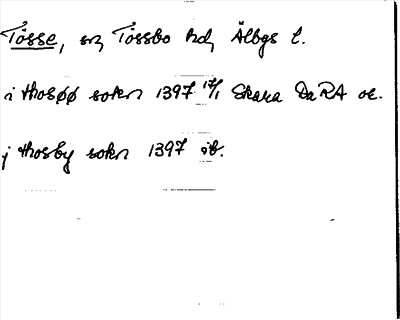 Tösse, sn, Tössbo hd, Älbgs l.
i thosøø sokn 1397 17/1 Skara DaRA or.
j thosby sokn 1397 ib.